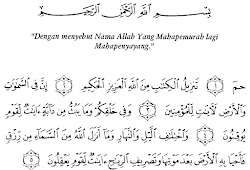 بِسْمِ اللَّهِ الرَّحْمَٰنِ الرَّحِيمِ
"Dengan menyebut Nama Allah Yang Mahapemurah lagi
Mahapenyayang."
حمٓ ١ تَنزِيلُ الْكِتَٰبِ مِنَ اللَّهِ الْعَزِيزِ الْحَكِيمِ ٢ إِنَّ فِي السَّمَٰوَٰتِ
وَالْأَرْضِ لَآيَٰتٍ لِّلْمُؤْمِنِينَ ٣ وَفِي خَلْقِكُمْ وَمَا يَبُثُّ مِن دَآبَّةٍ آيَٰتٌ لِّقَوْمٍ
يُوقِنُونَ ٤ وَاخْتِلَٰفِ اللَّيْلِ وَالنَّهَارِ وَمَآ أَنزَلَ اللَّهُ مِنَ السَّمَآءِ مِن رِّزْقٍ
فَأَحْيَا بِهِ الْأَرْضَ بَعْدَ مَوْتِهَا وَتَصْرِيفِ الرِّيَٰحِ آيَٰتٌ لِّقَوْمٍ يَعْقِلُونَ ٥